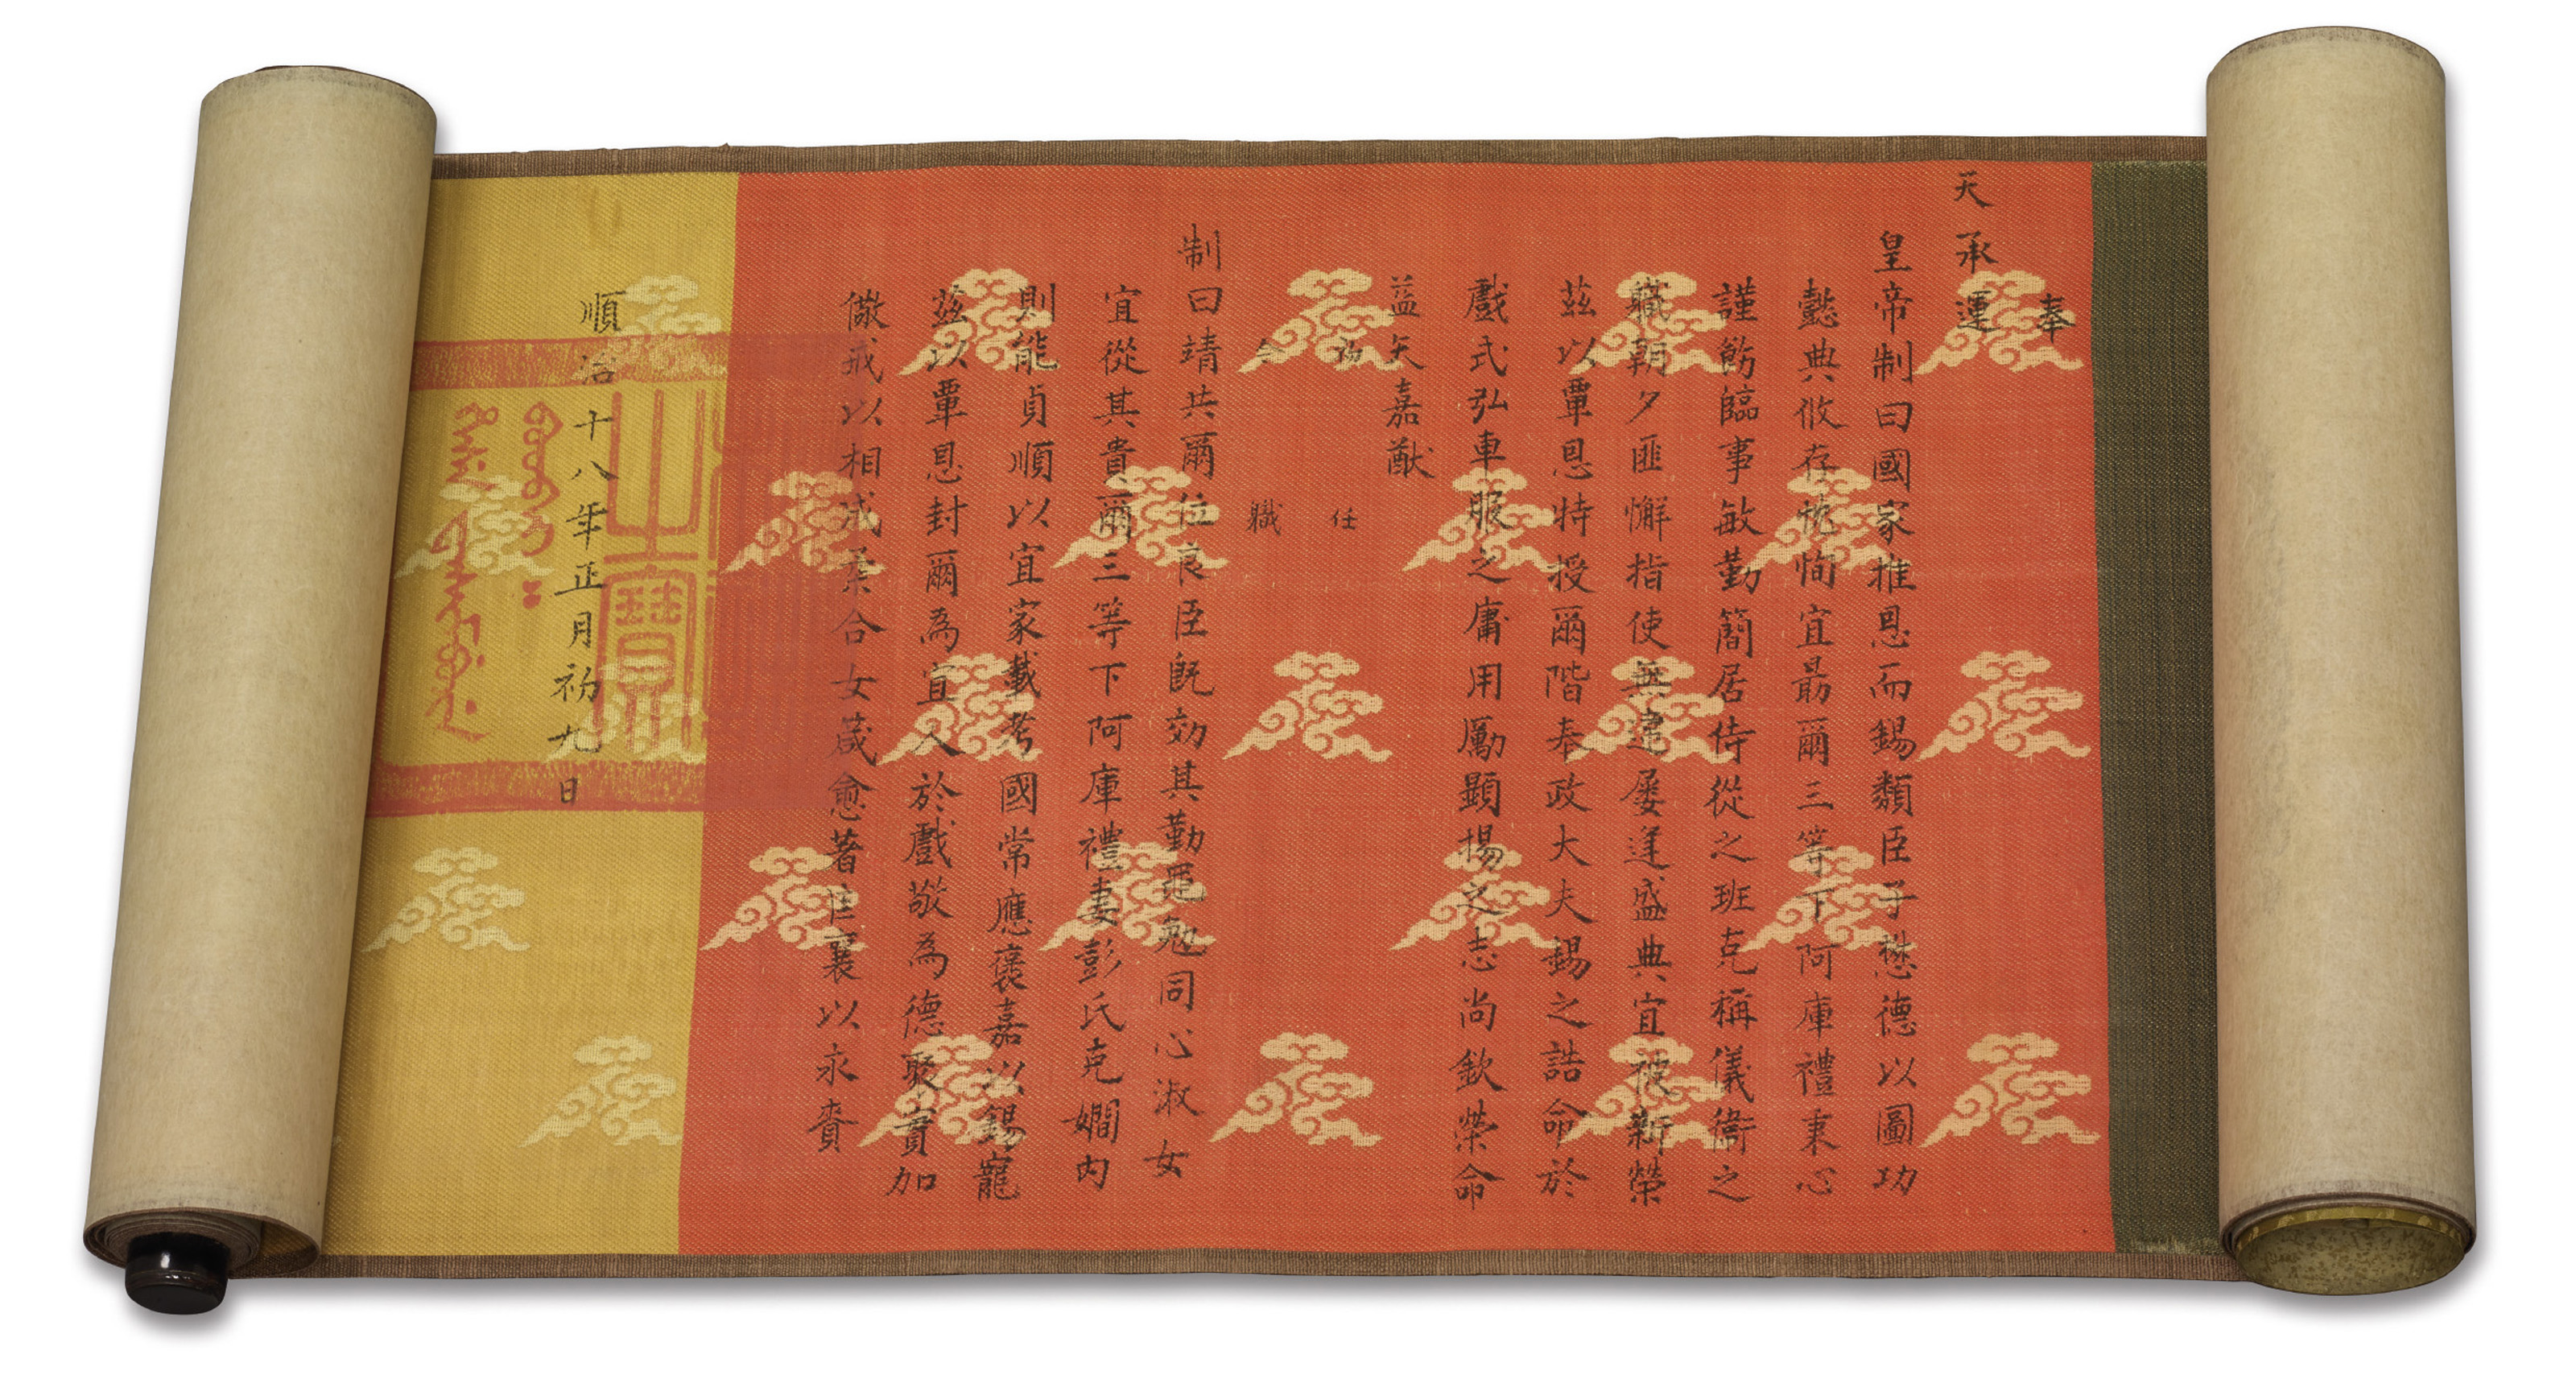 奉
天承運
皇帝制曰國家推恩而錫類臣子懋德以圖功
懿典攸存忱恂宜勗爾三等下阿庫禮秉心
謹飭臨事敏勤簡居侍從之班克稱儀衞之
職朝夕匪懈指使無違屢逢盛典宜被新榮
茲以覃恩特授爾階奉政大夫錫之誥命於
戲式弘車服之庸用勵顯揚之志尚欽榮命
益矢嘉猷
初任
今職
制曰靖共爾位良臣旣効其勤黽勉同心淑女
宜從其貴爾三等下阿庫禮妻彭氏克嫺内
則能貞順以宜家載考國常應褒嘉以錫寵
茲以覃恩封爾為宜人於戲敬為德聚實加
儆戒以相成柔合女箴愈著匡襄以永賚
順治十八年正月初九日
之寶